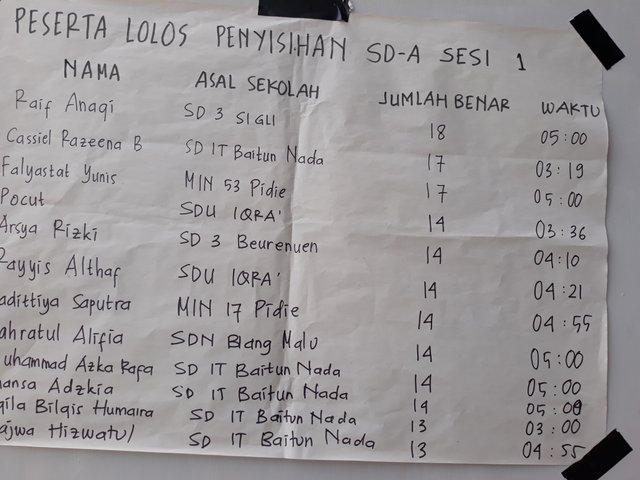 PESERTA LOLOS PENYISIHAN SD-A SESI 1
NAMA ASAL SEKOLAH JUMLAH BENAR WAKTU
Raif Anaqi SD 3 SIGLI 18 05:00
Cassiel Razeena B SD IT Baitun Nada 17 03:19
Falyastat Yunis MIN 53 Pidie 17 05:00
Pocut SDU IQRA' 14 03:36
Arsya Rizki SD 3 Beurenuen 14 04:10
Rayyis Althaf SDU IQRA' 14 04:21
adittiya Saputra MIN 17 Pidie 14 04:55
ahratul Alifia SDN Blang Malu 14 05:00
uhammad Azka Rafa SD IT Baitun Nada 14 05:00
ansa Adzkia SD IT Baitun Nada 14 05:00
qila Bilqis Humaira SD IT Baitun Nada 13 03:00
ajwa Hizwatul SD IT Baitun Nada 13 04:55